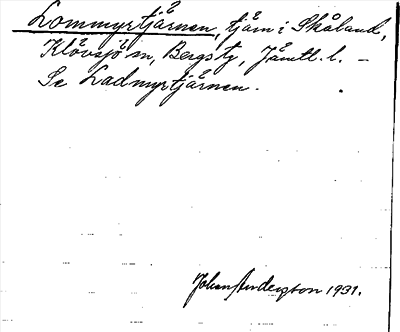 Lommyrtjärnen, tjärn i Skåland,
Klövsjö sn, Bergs tg, Jämtl. l. –
Se Ladmyrtjärnen.
Johan Anderson 1931.